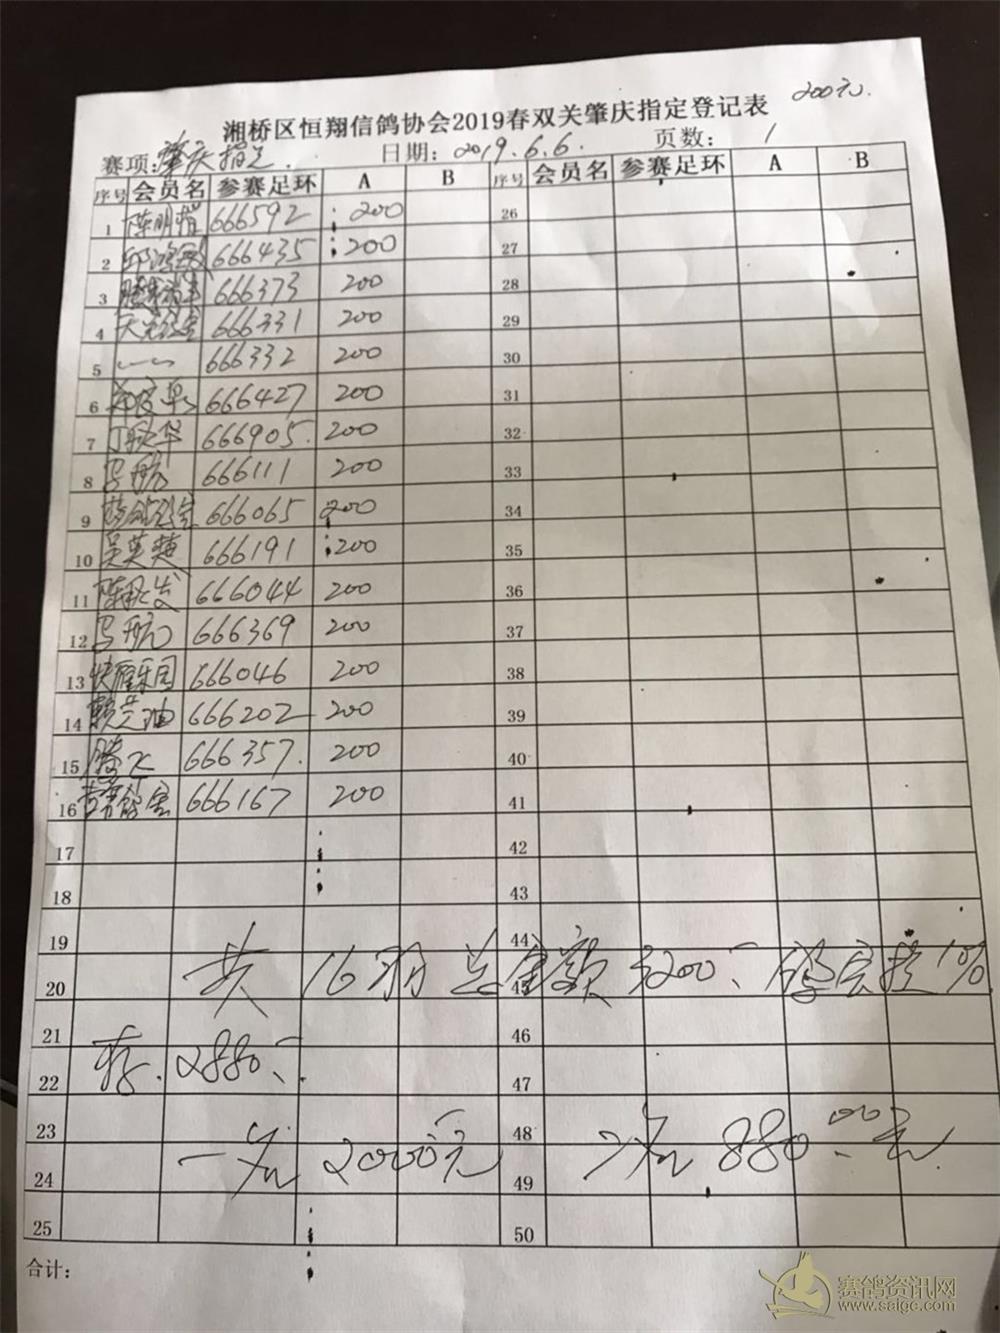 湘桥区恒翔信鸽协会2019春双关肇庆指定登记表 200元.
赛项: 肇庆指定. 日期: 2019.6.6. 页数: 1
序号 会员名 参赛足环 A B 序号 会员名 参赛足环 A B
1 陈明楷 666592 200 26
2 邱鸿 666435 200 27
3 666373 200 28
4 666331 200 29
5 666332 200 30
6 666427 200 31
7 华 666905. 200 32
8 马航 666111 200 33
9 666065 200 34
10 吴英 666191 200 35
11 陈 发 666044 200 36
12 马航 666369 200 37
13 快雁乐园 666046 200 38
14 赖 666202 200 39
15 腾飞 666357. 200 40
16 666167 200 41
17 42
18 43
19 44
共 16羽 总金额 3200 10%
20 45
21 46
存. 2880
22 47
23 48
一名 2000元 二名 880.00元
24 49
25 50
合计:
赛鸽资讯网
www.saigc.com